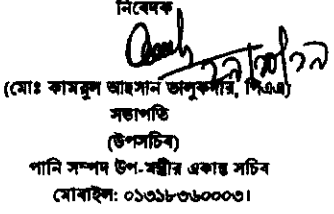 নিবেদক
(মোঃ কামরুল আহসান তালুকদার, পিএএ)
সভাপতি
(উপসচিব)
পানি সম্পদ উপ-মন্ত্রীর একান্ত সচিব
মোবাইল: ০১৩১৮৩৬০০০৩।